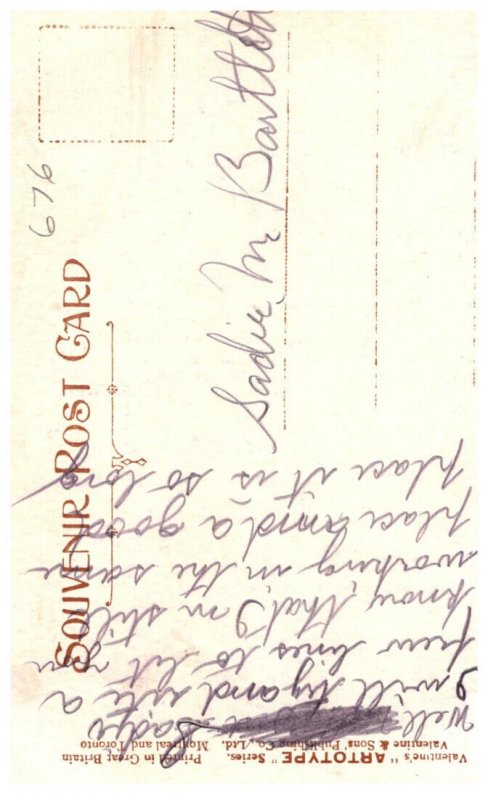 SOUVENIR POST CARD
676
Sadie M Bartlett
Well Sadie
I will try and write a
few lines to let you
know that I'm still
working in the same
place and a good
place it is so long
Valentine's "ARTOTYPE" Series.
Valentine & Sons' Publishing Co., Ltd.
Printed in Great Britain
Montreal and Toronto